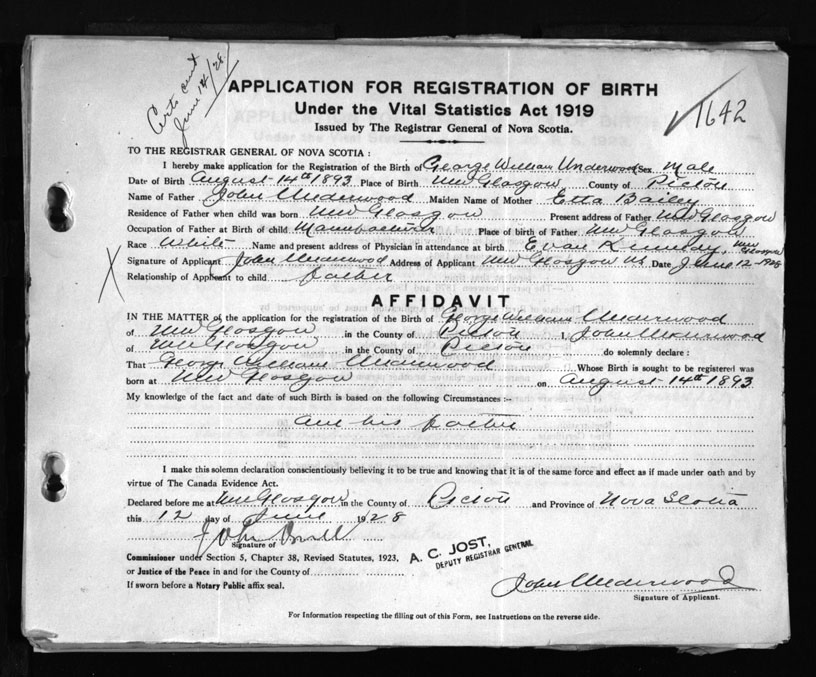 Certs sent
June 14/28
1642
APPLICATION FOR REGISTRATION OF BIRTH
Under the Vital Statistics Act 1919
Issued by The Registrar General of Nova Scotia.
TO THE REGISTRAR GENERAL OF NOVA SCOTIA :
I hereby make application for the Registration of the Birth of George William Underwood Sex Male
Date of Birth August 14th 1893 Place of Birth New Glasgow County of Pictou
Name of Father John Underwood Maiden Name of Mother Etta Bailey
Residence of Father when child was born New Glasgow Present address of Father New Glasgow
Occupation of Father at Birth of child Manufacturer Place of birth of Father New Glasgow
Race White Name and present address of Physician in attendance at birth Evan Kennedy, New Glasgow
Signature of Applicant John Underwood Address of Applicant New Glasgow NS Date June 12-1928
Relationship of Applicant to child father
AFFIDAVIT
IN THE MATTER of the application for the registration of the Birth of George William Underwood
of New Glasgow in the County of Pictou I, John Underwood
of New Glasgow in the County of Pictou do solemnly declare :
That George William Underwood Whose Birth is sought to be registered was
born at New Glasgow on August 14th 1893
My knowledge of the fact and date of such Birth is based on the following Circumstances :-
am his father
I make this solemn declaration conscientiously believing it to be true and knowing that it is of the same force and effect as if made under oath and by
virtue of The Canada Evidence Act.
Declared before me at New Glasgow in the County of Pictou and Province of Nova Scotia
this 12 day of June 1928
John
Signature of
Commissioner under Section 5, Chapter 38, Revised Statutes, 1923,
or Justice of the Peace in and for the County of
If sworn before a Notary Public affix seal.
A. C. JOST,
DEPUTY REGISTRAR GENERAL
John Underwood
Signature of Applicant.
For Information respecting the filling out of this Form, see Instructions on the reverse side.